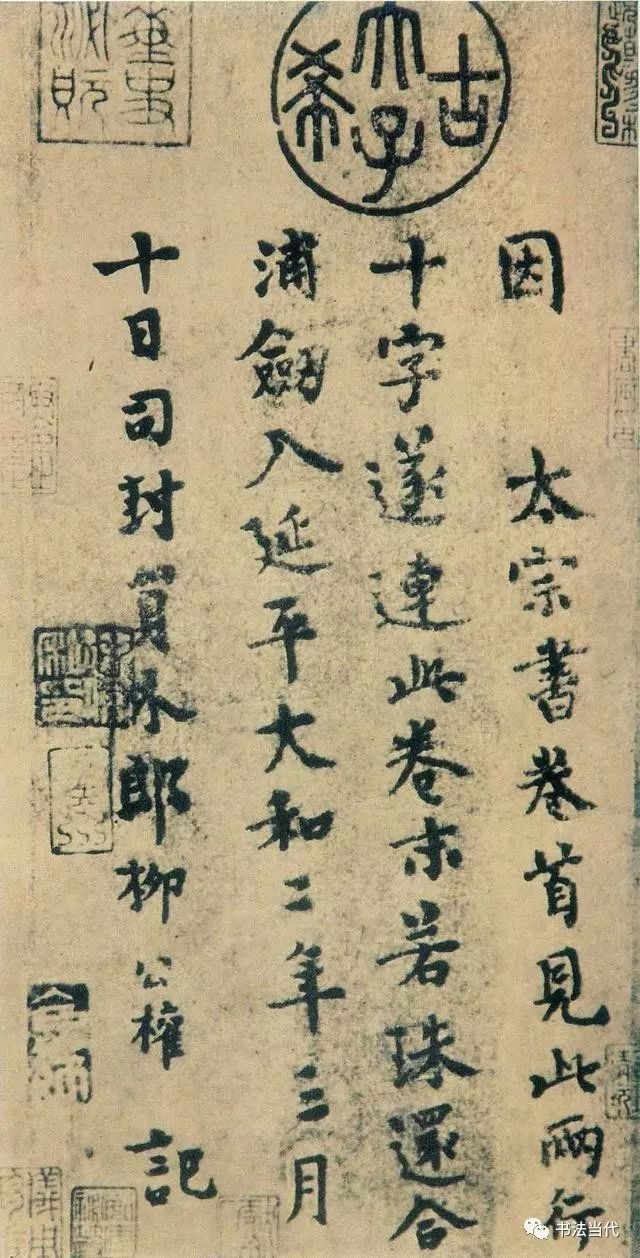 古希天子
因 太宗書卷首見此兩行
十字遂連此卷末若珠還合
浦劍入延平大和二年三月
十日司封員外郎柳公權 記
书法当代